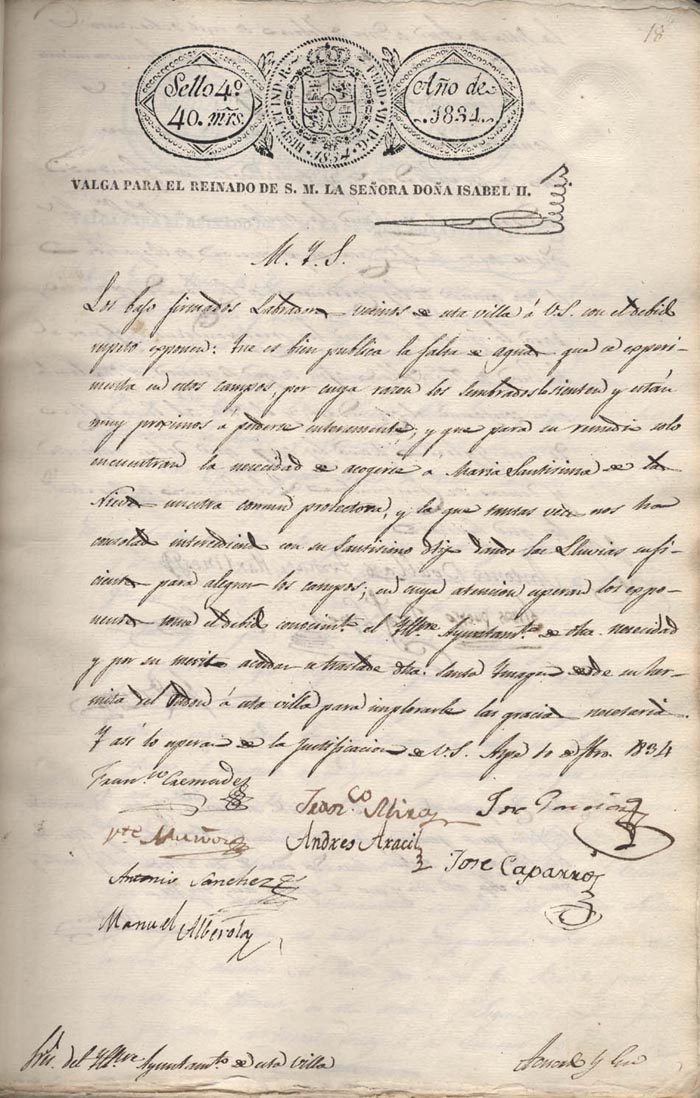 18
Sello 4º
40. mrs.
HISP. ET IND. R. FERD. VII. D. G. 1834
Año de
1834.
VALGA PARA EL REINADO DE S. M. LA SEÑORA DOÑA ISABEL II.
M. Y. S.
Los bajo firmados Labradores vecinos de esta villa á V.S. con el debido
respeto exponen: Que es bien publica la falta de aguas que se experi-
menta en estos campos, por cuya razon los sembrados lo sienten y están
muy proximos á perderse enteramente, y que para su remedio solo
encuentran la necesidad de acogerse á Maria Santisima de las
Nieves nuestra comun protectora, y la que tantas veces nos ha
consolado intercediendo con su Santisimo Hijo dando las Lluvias sufi-
cientes para alegrar los campos; en cuya atencion esperan los expo-
nentes tome el debido conocimto. el Yltre. Ayuntamto. de dha. necesidad
y por su merito acordar se traslade dha. Santa Ymagen desde su her-
mita del Hondon á esta villa para implorarle las gracias necesarias.
Y así lo esperan de la Justificacion de V.S. Aspe 10 de 1834
Franco. Cremades
Franco. Mira
Vte. Muñoz
Andres Aracil
Jose Caparros
Antonio Sanchez
Manuel Alberola
Sres. del Yltre. Ayuntamto. de esta villa